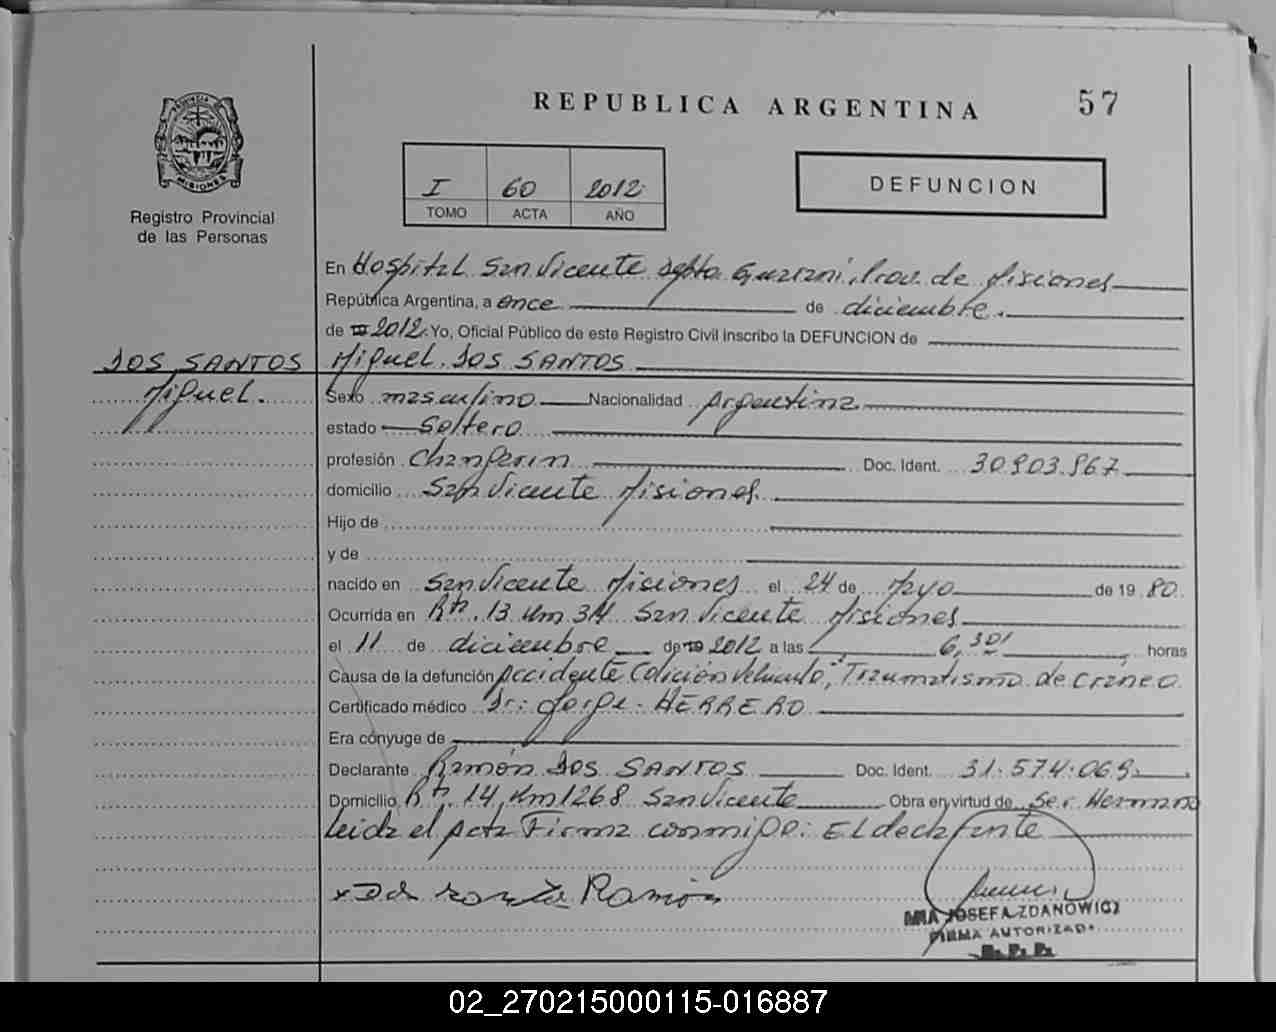 REPUBLICA ARGENTINA
57
PROVINCIA DE
MISIONES
Registro Provincial
de las Personas
I 60 2012
TOMO ACTA AÑO
DEFUNCION
En Hospital San Vicente Dpto Guarani, Prov. de Misiones
República Argentina, a once de diciembre.
de 19 2012. Yo, Oficial Público de este Registro Civil inscribo la DEFUNCION de
DOS SANTOS Miguel. DOS SANTOS
Miguel. Sexo masculino Nacionalidad Argentina
estado Soltero
profesión Changarin Doc. Ident. 30.903.867
domicilio San Vicente Misiones.
Hijo de
y de
nacido en San Vicente Misiones el 24 de Mayo de 1980.
Ocurrida en Rta. 13 Km 34 San Vicente Misiones
el 11 de diciembre de 19 2012 a las 6,30' horas
Causa de la defunción Accidente Colición Vehiculo, Traumatismo de craneo
Certificado médico Dr: Jorge. HERRERO
Era cónyuge de
Declarante Ramón DOS SANTOS Doc. Ident. 31.574.069
Domicilio Rta. 14 Km 1268 San Vicente Obra en virtud de Ser Hermano
Leida el acta Firma conmigo: El declarante
x Ramón
JOSEFA ZDANOWICZ
FIRMA AUTORIZADA
02_270215000115-016887